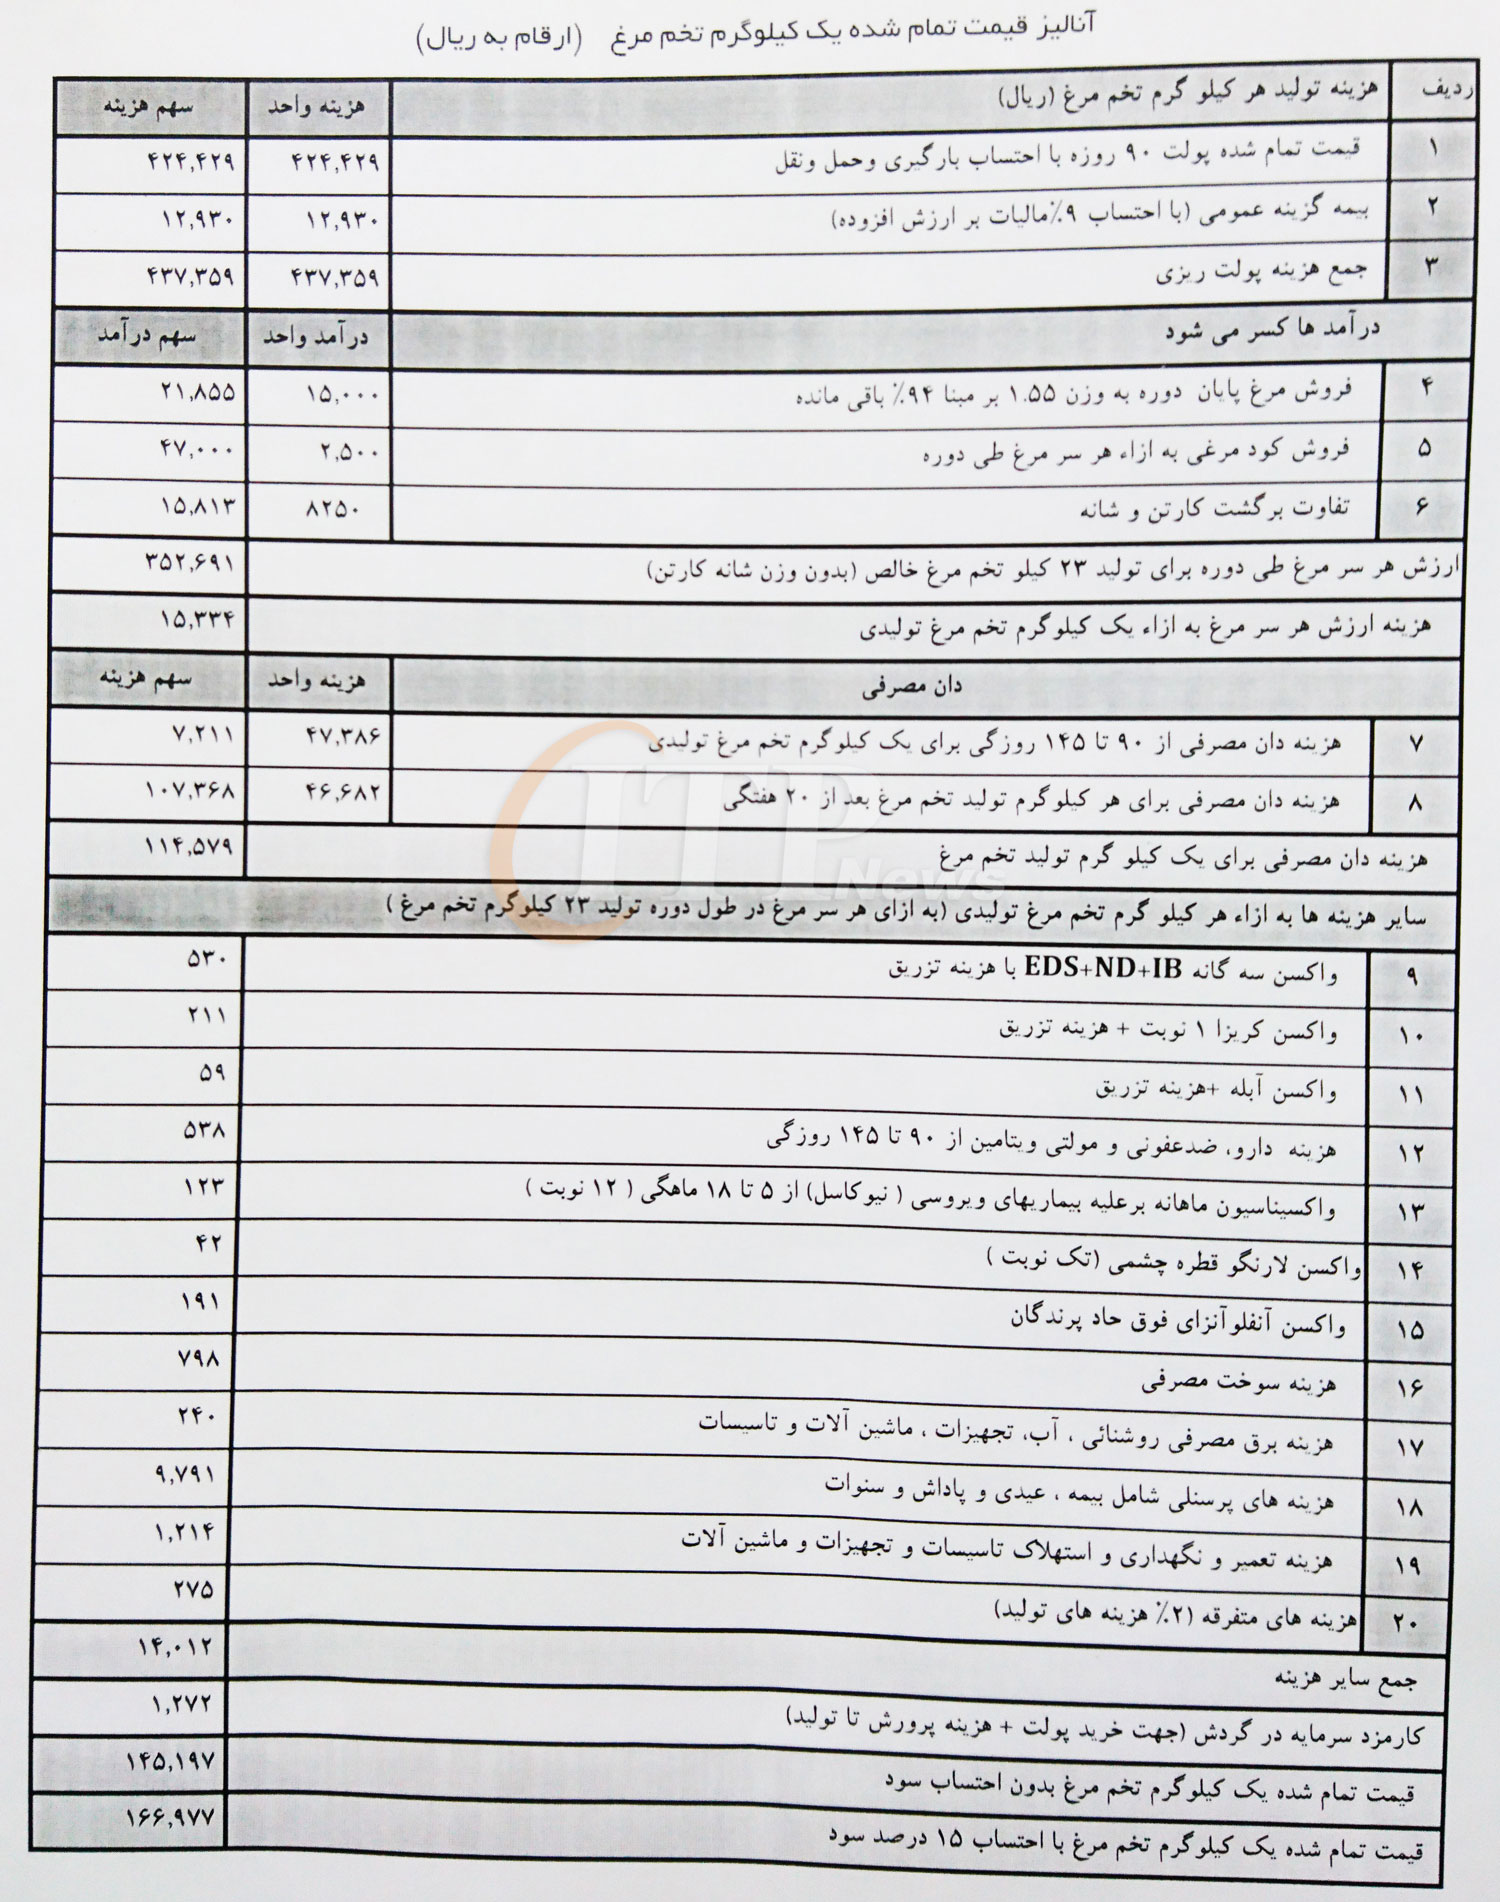 آنالیز قیمت تمام شده یک کیلوگرم تخم مرغ (ارقام به ریال)
ردیف هزینه تولید هر کیلو گرم تخم مرغ (ریال) هزینه واحد سهم هزینه
۱ قیمت تمام شده پولت ۹۰ روزه با احتساب بارگیری وحمل ونقل ۴۲۴,۴۲۹ ۴۲۴,۴۲۹
۲ بیمه گزینه عمومی (با احتساب ۹٪مالیات بر ارزش افزوده) ۱۲,۹۳۰ ۱۲,۹۳۰
۳ جمع هزینه پولت ریزی ۴۳۷,۳۵۹ ۴۳۷,۳۵۹
درآمد ها کسر می شود درآمد واحد سهم درآمد
۴ فروش مرغ پایان دوره به وزن ۱.۵۵ بر مبنا ۹۴٪ باقی مانده ۱۵,۰۰۰ ۲۱,۸۵۵
۵ فروش کود مرغی به ازاء هر سر مرغ طی دوره ۲,۵۰۰ ۴۷,۰۰۰
۶ تفاوت برگشت کارتن و شانه ۸۲۵۰ ۱۵,۸۱۳
ارزش هر سر مرغ طی دوره برای تولید ۲۳ کیلو تخم مرغ خالص (بدون وزن شانه کارتن) ۳۵۲,۶۹۱
هزینه ارزش هر سر مرغ به ازاء یک کیلوگرم تخم مرغ تولیدی ۱۵,۳۳۴
دان مصرفی هزینه واحد سهم هزینه
۷ هزینه دان مصرفی از ۹۰ تا ۱۴۵ روزگی برای یک کیلوگرم تخم مرغ تولیدی ۴۷,۳۸۶ ۷,۲۱۱
۸ هزینه دان مصرفی برای هر کیلوگرم تولید تخم مرغ بعد از ۲۰ هفتگی ۴۶,۶۸۲ ۱۰۷,۳۶۸
هزینه دان مصرفی برای یک کیلو گرم تولید تخم مرغ ۱۱۴,۵۷۹
سایر هزینه ها به ازاء هر کیلو گرم تخم مرغ تولیدی (به ازای هر سر مرغ در طول دوره تولید ۲۳ کیلوگرم تخم مرغ )
۹ واکسن سه گانه EDS+ND+IB با هزینه تزریق ۵۳۰
۱۰ واکسن کریزا ۱ نوبت + هزینه تزریق ۲۱۱
۱۱ واکسن آبله +هزینه تزریق ۵۹
۱۲ هزینه دارو، ضدعفونی و مولتی ویتامین از ۹۰ تا ۱۴۵ روزگی ۵۳۸
۱۳ واکسیناسیون ماهانه برعلیه بیماریهای ویروسی ( نیوکاسل) از ۵ تا ۱۸ ماهگی ( ۱۲ نوبت ) ۱۲۳
۱۴ واکسن لارنگو قطره چشمی (تک نوبت ) ۴۲
۱۵ واکسن آنفلوآنزای فوق حاد پرندگان ۱۹۱
۱۶ هزینه سوخت مصرفی ۷۹۸
۱۷ هزینه برق مصرفی روشنائی ، آب، تجهیزات ، ماشین آلات و تاسیسات ۲۴۰
۱۸ هزینه های پرسنلی شامل بیمه ، عیدی و پاداش و سنوات ۹,۷۹۱
۱۹ هزینه تعمیر و نگهداری و استهلاک تاسیسات و تجهیزات و ماشین آلات ۱,۲۱۴
۲۰ هزینه های متفرقه (۲٪ هزینه های تولید) ۲۷۵
جمع سایر هزینه ۱۴,۰۱۲
کارمزد سرمایه در گردش (جهت خرید پولت + هزینه پرورش تا تولید) ۱,۲۷۲
قیمت تمام شده یک کیلوگرم تخم مرغ بدون احتساب سود ۱۴۵,۱۹۷
قیمت تمام شده یک کیلوگرم تخم مرغ با احتساب ۱۵ درصد سود ۱۶۶,۹۷۷
ITPNews